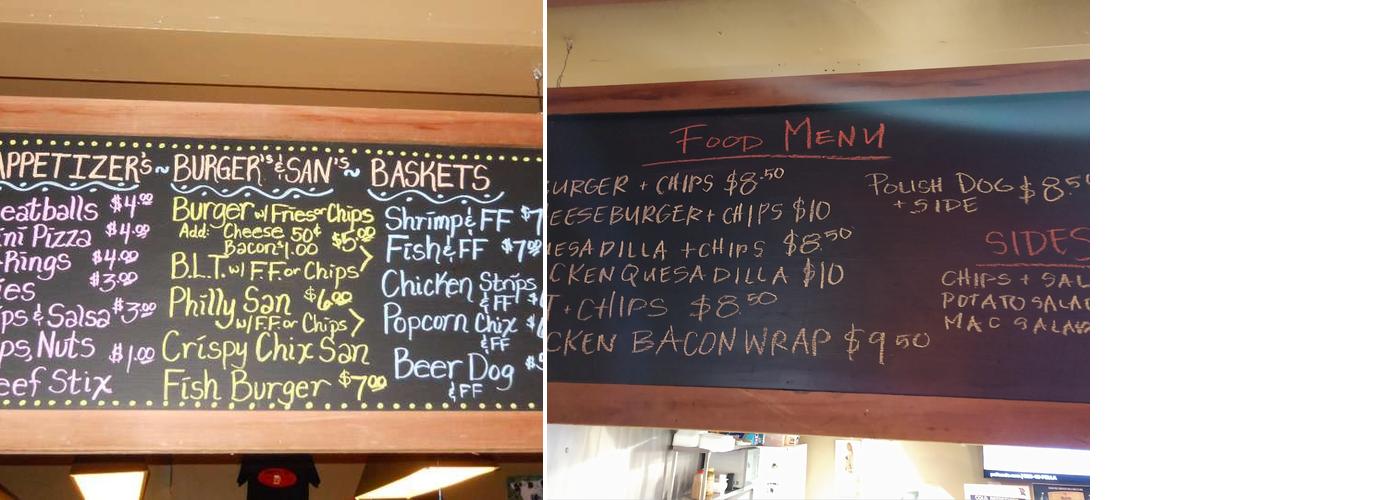 APPETIZER's ~ BURGER's & SAN's ~ BASKETS
eatballs $4.00
ini Pizza $4.00
-Rings $4.00
ies $3.00
ps & Salsa $3.00
ps, Nuts $1.00
eef Stix
Burger w/ Fries or Chips
Add: Cheese 50¢ $5.00
Bacon $1.00
B.L.T. w/ F.F. or Chips
Philly San $6.00
w/ F.F. or Chips
Crispy Chix San
Fish Burger $7.00
Shrimp & FF $7
Fish & FF $7.00
Chicken Strips
& FF
Popcorn Chix
& FF
Beer Dog
& FF
FOOD MENU
URGER + CHIPS $8.50
EESEBURGER + CHIPS $10
ESADILLA + CHIPS $8.50
CKEN QUESADILLA $10
T + CHIPS $8.50
CKEN BACON WRAP $9.50
POLISH DOG $8.50
+ SIDE
SIDES
CHIPS + SAL
POTATO SALAD
MAC SALAD